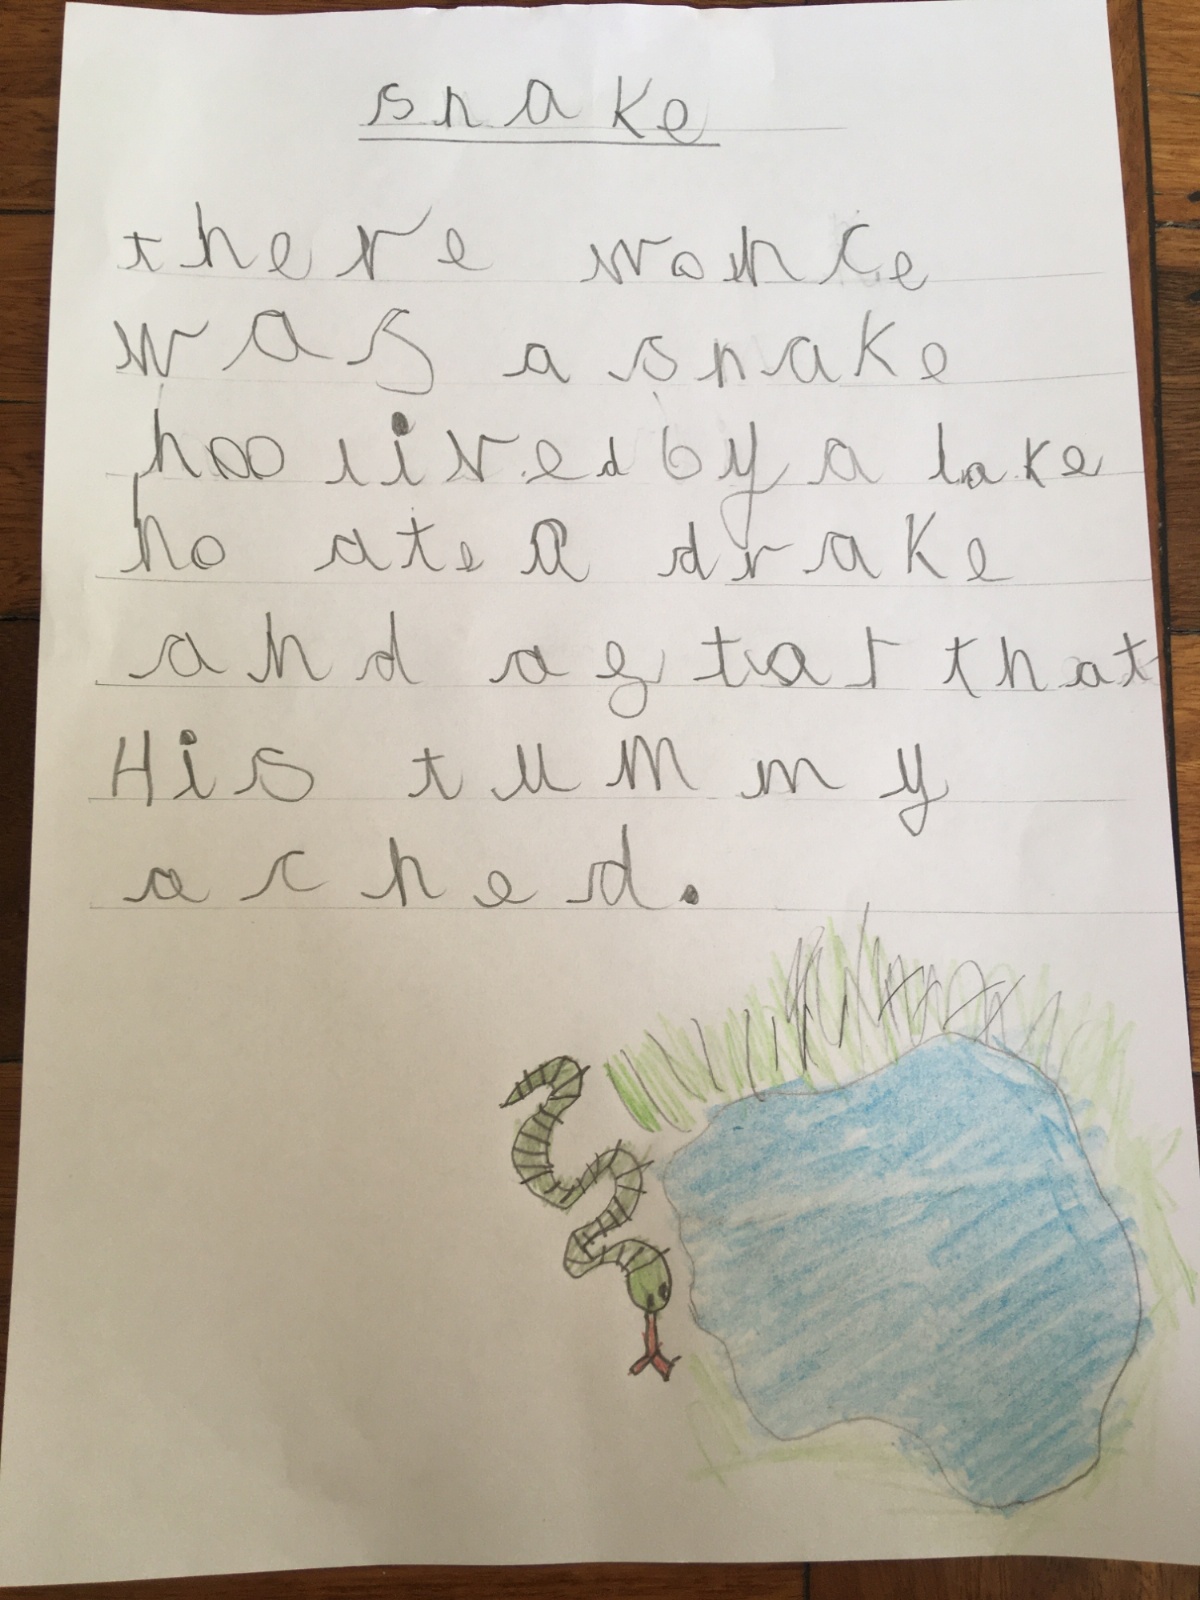 snake
there wonce
was a snake
hoo lived by a lake
ho ate a drake
and aftar that
His tummy
ached.